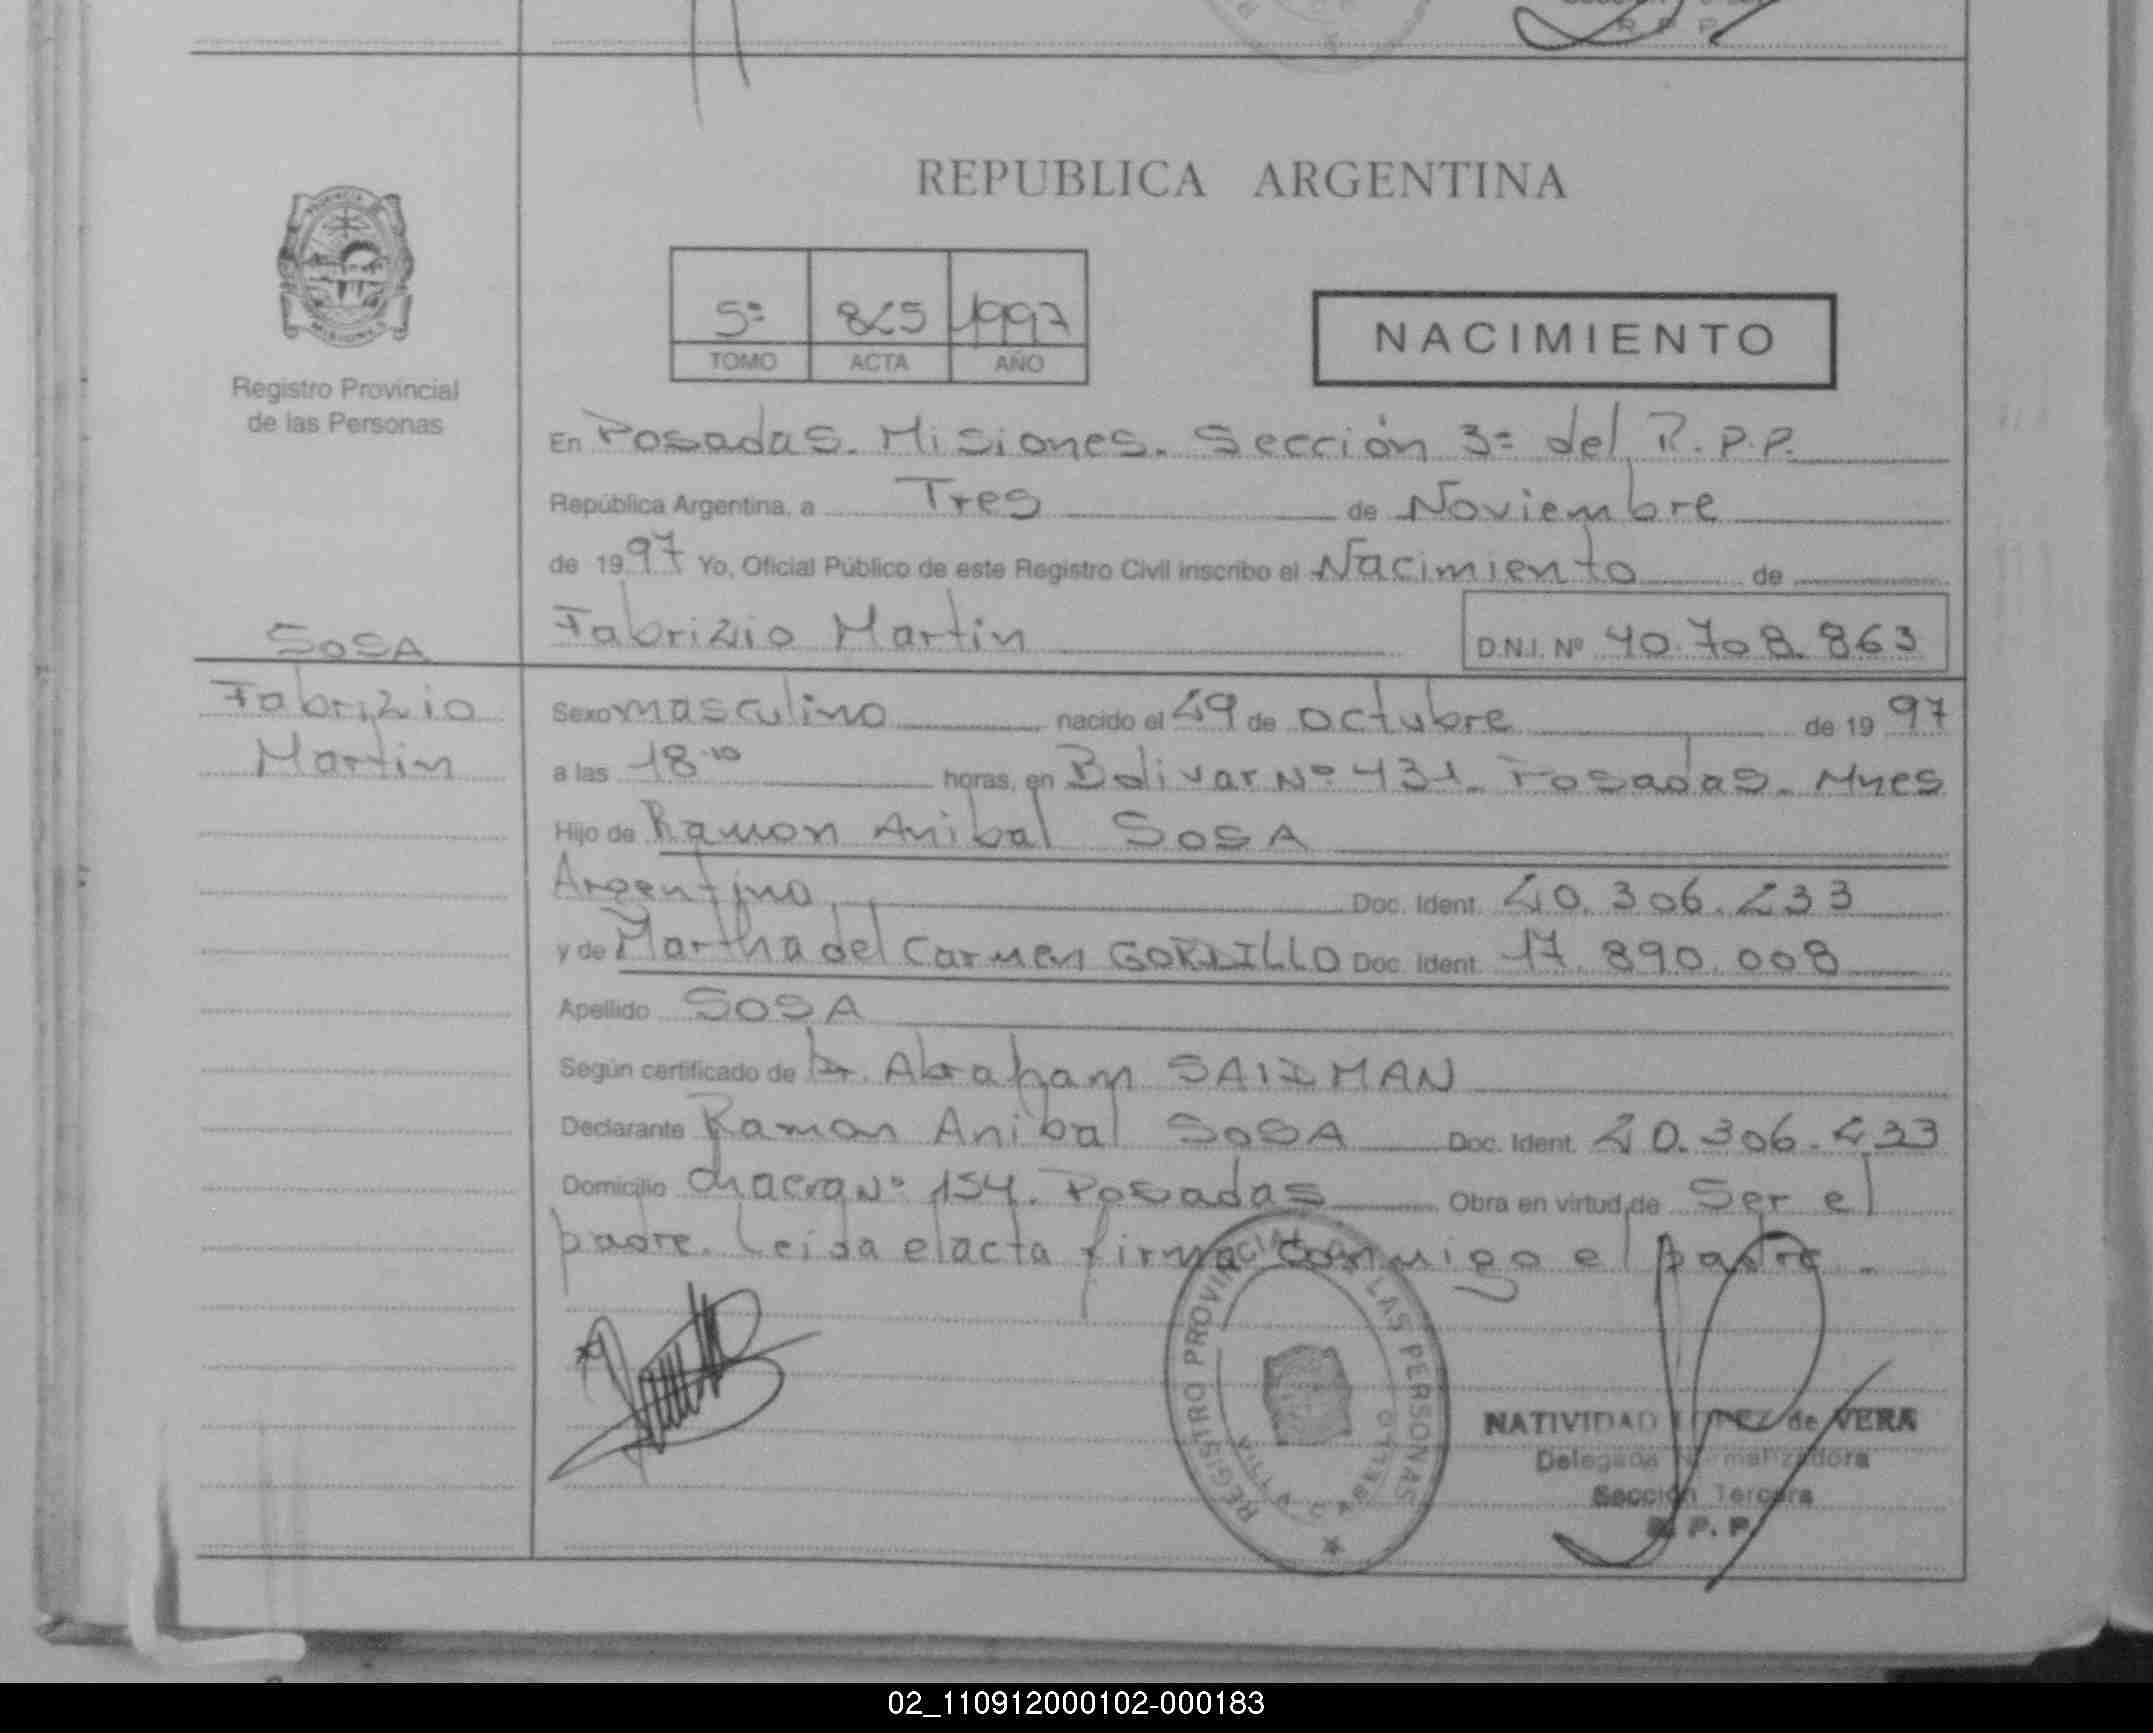 REPUBLICA ARGENTINA
5º 825 1997
TOMO ACTA AÑO
NACIMIENTO
Registro Provincial
de las Personas
En Posadas. Misiones. Sección 3ª del R.P.P.
República Argentina, a Tres de Noviembre
de 1997 Yo, Oficial Público de este Registro Civil inscribo el Nacimiento de
SOSA
Fabrizio Martin
Fabrizio Martin
D.N.I. Nº 40.708.863
Sexo masculino nacido el 29 de octubre de 1997
a las 18.10 horas, en Bolivar Nº 431. Posadas. Mnes
Hijo de Ramon Anibal SOSA
Argentino Doc. Ident. 20.306.233
y de Martha del Carmen GORDILLO Doc. Ident. 17.890.008
Apellido SOSA
Según certificado de Dr. Abraham SAIZMAN
Declarante Ramon Anibal SOSA Doc. Ident. 20.306.233
Domicilio chacra Nº 154. Posadas Obra en virtud de Ser el
padre. Leida el acta firma conmigo el padre.
REGISTRO PROVINCIAL DE LAS PERSONAS
NATIVIDAD LOPEZ de VERA
Delegada Normalizadora
Sección Tercera
R.P.P.
02_110912000102-000183